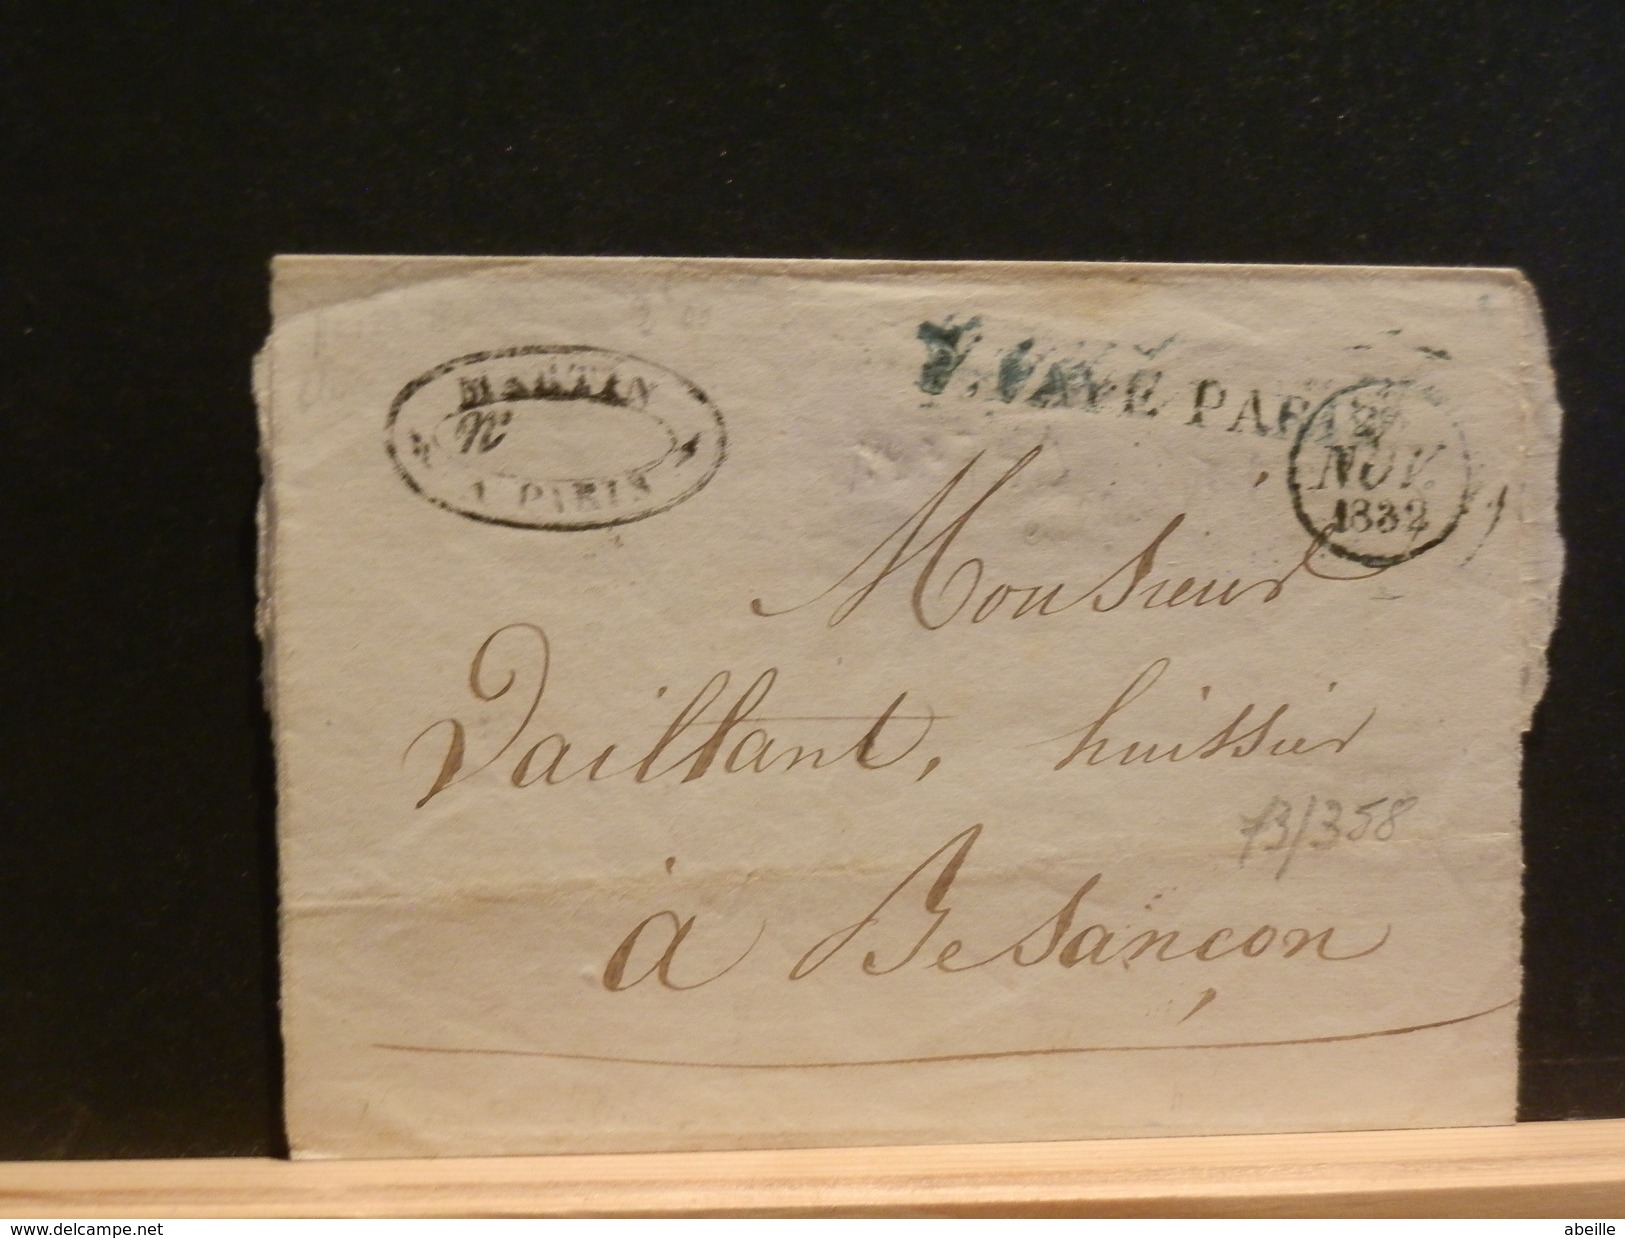 MARTIN
N°
A PARIS
P. PAYÉ PARIS
NOV.
1832
Monsieur
Vaillant, huissier
73/358
à Besançon
www.delcampe.net
abeille